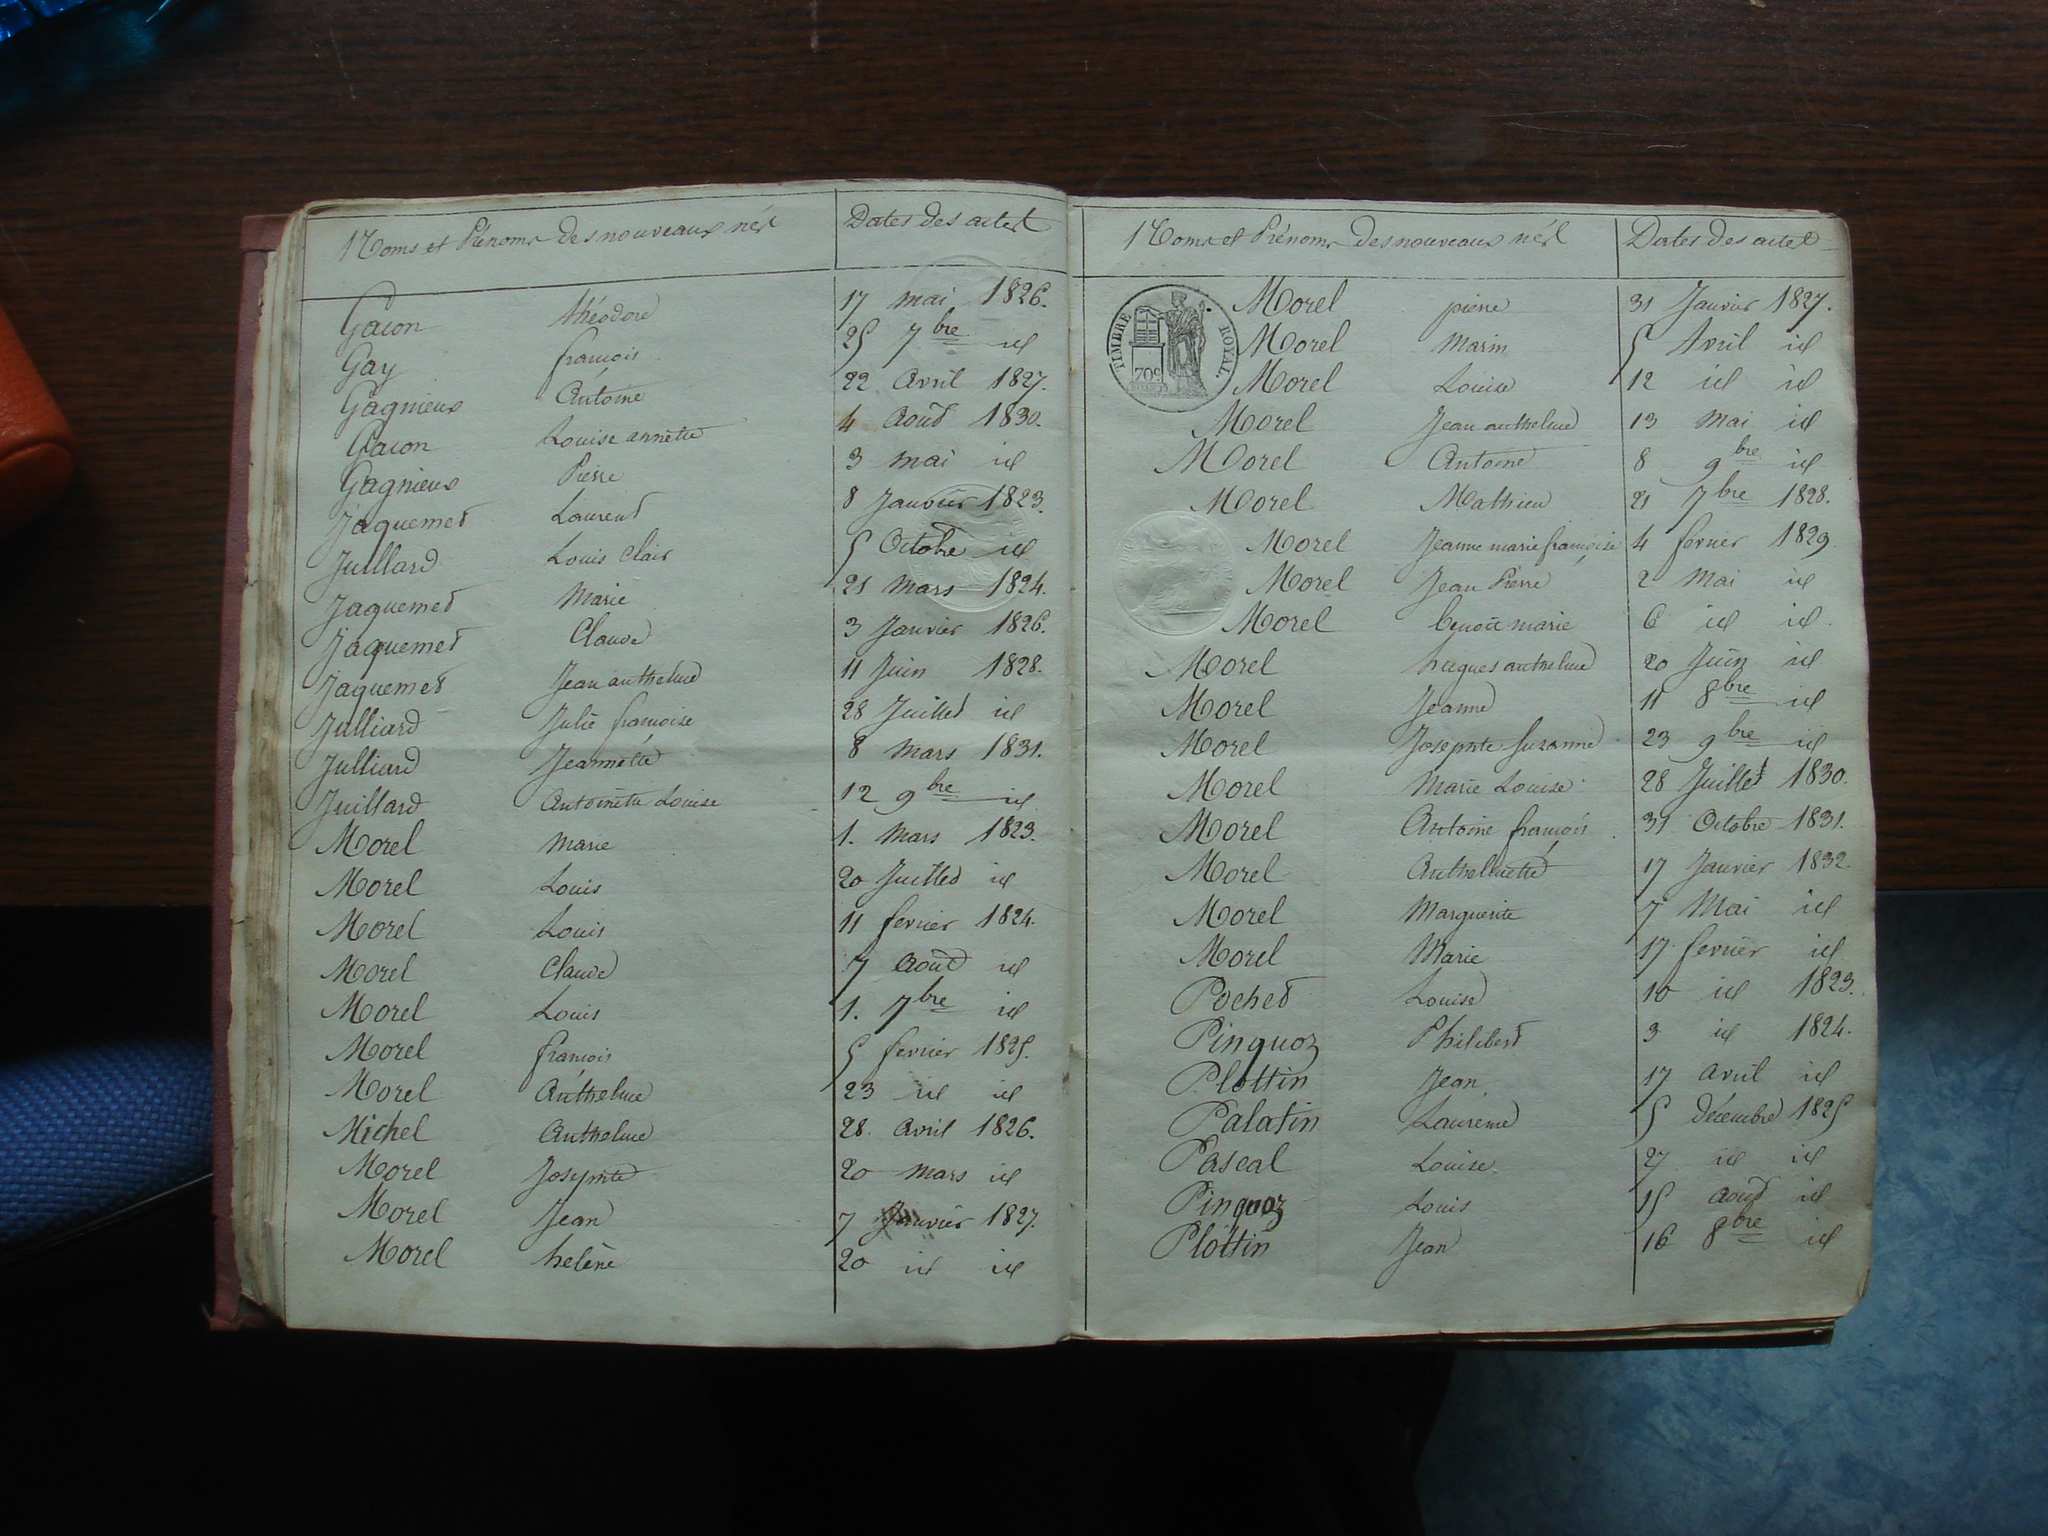 Noms et Prénoms des nouveaux nés Dates des actes
Gacon théodore 17 mai 1826.
Gay françois 25 7bre id
Gagnieux Antoine 22 Avril 1827.
Gacon Louise annette 4 Aout 1830.
Gagnieux Pierre 3 mai id
Jaquemet Laurent 8 Janvier 1823.
Julllard Louis Clair 5 Octobre id
Jaquemet Marie 21 Mars 1824.
Jaquemet Claude 3 Janvier 1826.
Jaquemet Jean anthelme 11 Juin 1828.
Julliard Julie françoise 28 Juillet id
Julliard Jeannette 8 Mars 1831.
Juillard Antoinette Louise 12 9bre id
Morel Marie 1. Mars 1823.
Morel Louis 20 Juillet id
Morel Louis 11 fevrier 1824.
Morel Claude 7 Aout id
Morel Louis 1. 7bre id
Morel françois 5 fevrier 1825.
Morel Anthelme 23 id id
Michel Anthelme 28 Avril 1826.
Morel Josephte 20 Mars id
Morel Jean 7 Janvier 1827.
Morel helène 20 id id
Noms et Prénoms des nouveaux nés Dates des actes
TIMBRE ROYAL.
70c
Morel pierre 31 Janvier 1827.
Morel Marin 5 Avril id
Morel Louise 12 id id
Morel Jean anthelme 13 Mai id
Morel Antoine 8 9bre id
Morel Mathieu 21 7bre 1828.
Morel Jeanne marie françoise 4 fevrier 1829.
Morel Jean Pierre 2 Mai id
Morel benoit marie 6 id id
Morel hugues anthelme 20 Juin id
Morel Jeanne 11 8bre id
Morel Josephte Suzanne 23 9bre id
Morel Marie Louise 28 Juillet 1830.
Morel Antoine françois 31 Octobre 1831.
Morel Anthelmette 17 Janvier 1832.
Morel Marguerite 7 Mai id
Morel Marie 17 fevrier id
Pochet Louise 10 id 1823.
Pinquoz Philibert 3 id 1824.
Plottin Jean 17 avril id
Palatin Laurence 5 décembre 1825
Pascal Louise 27 id id
Pinquoz Louis 15 Aout id
Plottin Jean 16 8bre id